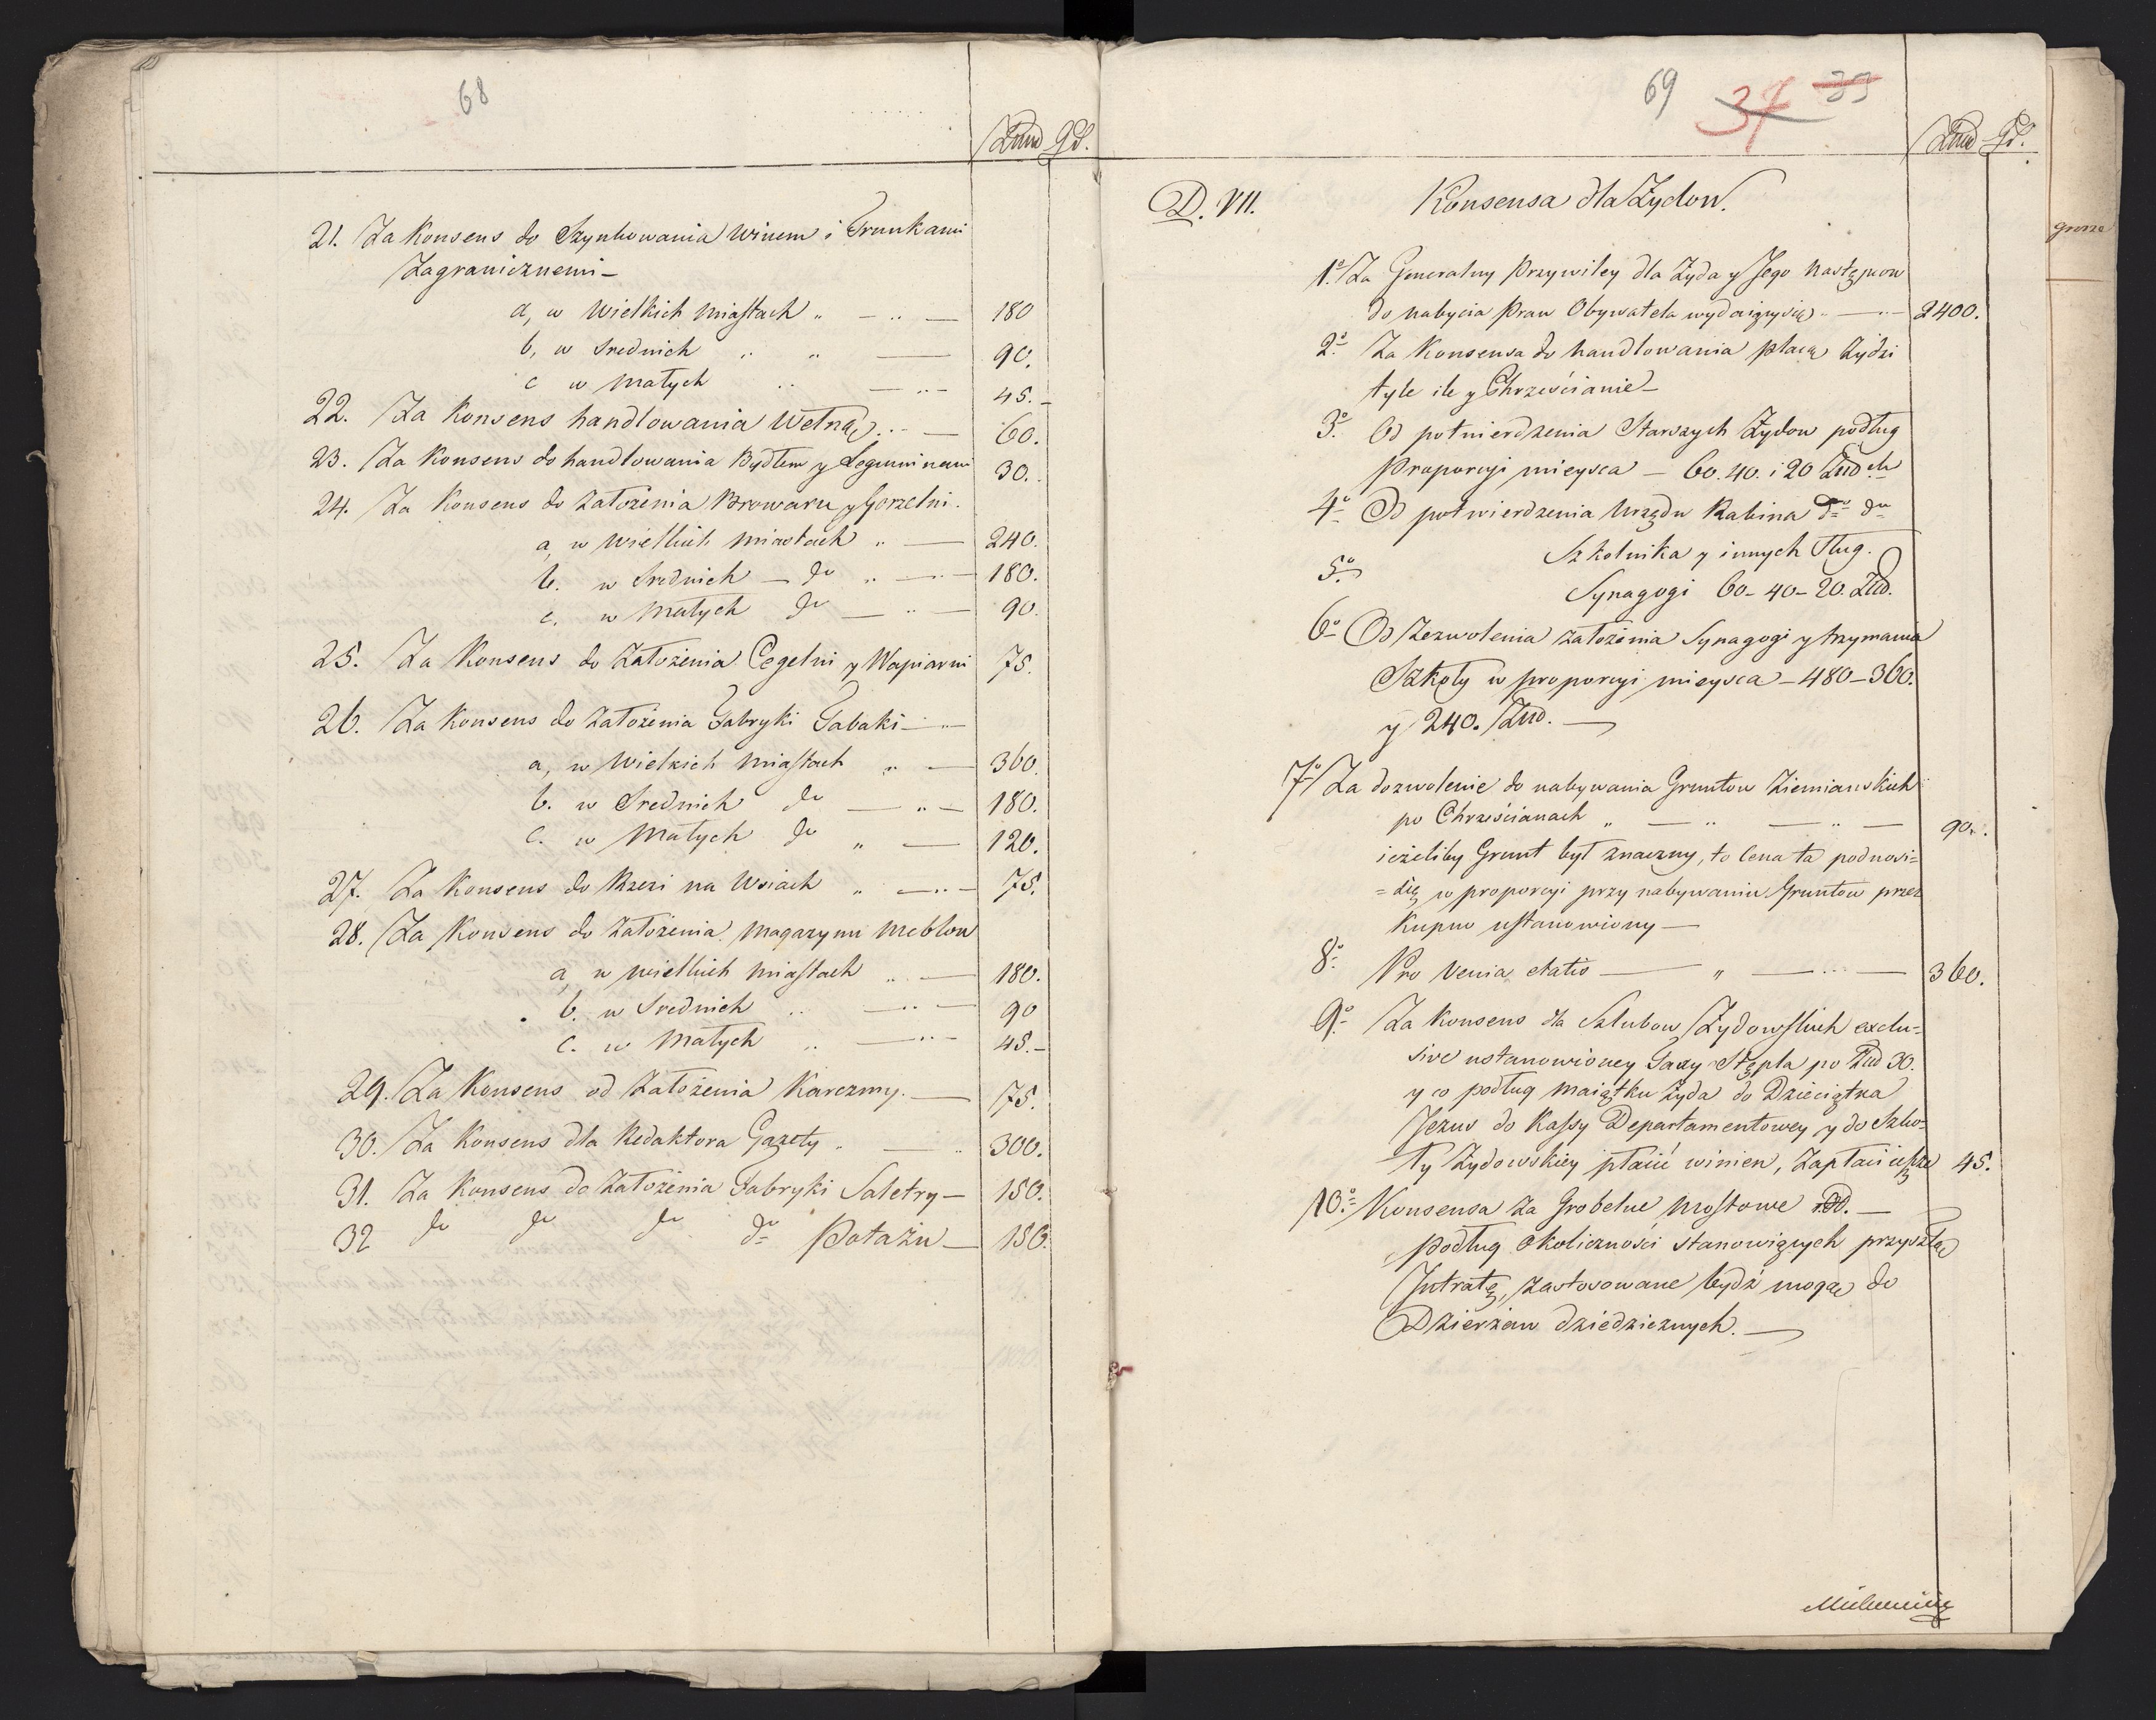 68
Złłud Gr.
21. Za Konsens do Szynkowania Winem i Trunkami
Zagranicznemi –
a, w Wielkich miastach „ – „ – 180
b, w Srednich „ „ – 90.
c w małych „ – „ – 45. –
22. Za Konsens handlowania Wełną „ – 60.
23. Za Konsens do handlowania Bydłem y Leguminami 30.
24. Za Konsens do założenia Browaru y Gorzelni.
a, w wielkich miastach „ – 240.
b. w Srednich – do „ – „ – 180.
c. w małych do – „ – 90.
25. Za Konsens do Założenia Cegelni y Wapiarni 75.
26. Za Konsens do założenia Fabryki Tabaki – „ –
a, w Wielkich miastach „ – 360.
b. w Srednich do – „ – 180.
c. w małych do „ – 120.
27. Za Konsens do Rzezi na Wsiach „ – „ – 75.
28. Za Konsens do założenia magazynu meblow
a, w wielkich miastach „ – 180.
b. w Srednich „ – „ – 90
c. w małych „ – „ – 45. –
29. Za Konsens od założenia Karczmy. – 75.
30. Za Konsens dla Redaktora Gazety „ – „ 300.
31. Za Konsens do założenia Fabryki Saletry – 150.
32 do do do do Potażu – 150.
69 37 35
Gr.
D. VII. Konsensa dla Żydow.
1o Za Generalny Przywiley dla Żyda y Jego następcow
do nabycia Praw Obywatela wydaiący się „ – „ – 2400.
2o Za Konsensa do handlowania płacą Żydzi
tyle ile y Chrześcianie –
3o Od potwierdzenia Starszych Żydow podług
Proporcyi mieysca – 60. 40. i 20 Złudch
4o Od potwierdzenia Urzędu Rabina do do
5o Szkolnika y innych Sług.
Synagogi 60 – 40 – 20. Złud.
6o Od Zezwolenia założenia Synagogi y trzymania
Szkoły w proporcyi mieysca – 480 – 360.
y 240. Złud. –
7o Za dozwolenie do nabywania Gruntow Ziemianskich
po Chrześcianach „ – „ – „ – 90.
ieżeliby Grunt był znaczny, to Cena ta podnosi=
=się w proporcyi przy nabywaniu Gruntow przez
Kupno ustanowiony –
8o Pro Venia etatis – „ – „ – 360.
9o Za Konsens dla Szlubow Żydowskich exclu=
sive ustanowioney Taxy Stępla po Złud 30.
y co podług maiątku Żyda do Dzieciątka
Jezus do Kassy Departamentowey y do Szko=
ły Żydowskiey płacić winien, zapłaci ieszcze 45.
10o Konsensa za Grobelne mostowe –
podług okoliczności stanowiących przyszłą
Intratę, zastosowane bydź mogą do
Dzierżaw dziedzicznych. –
grosze